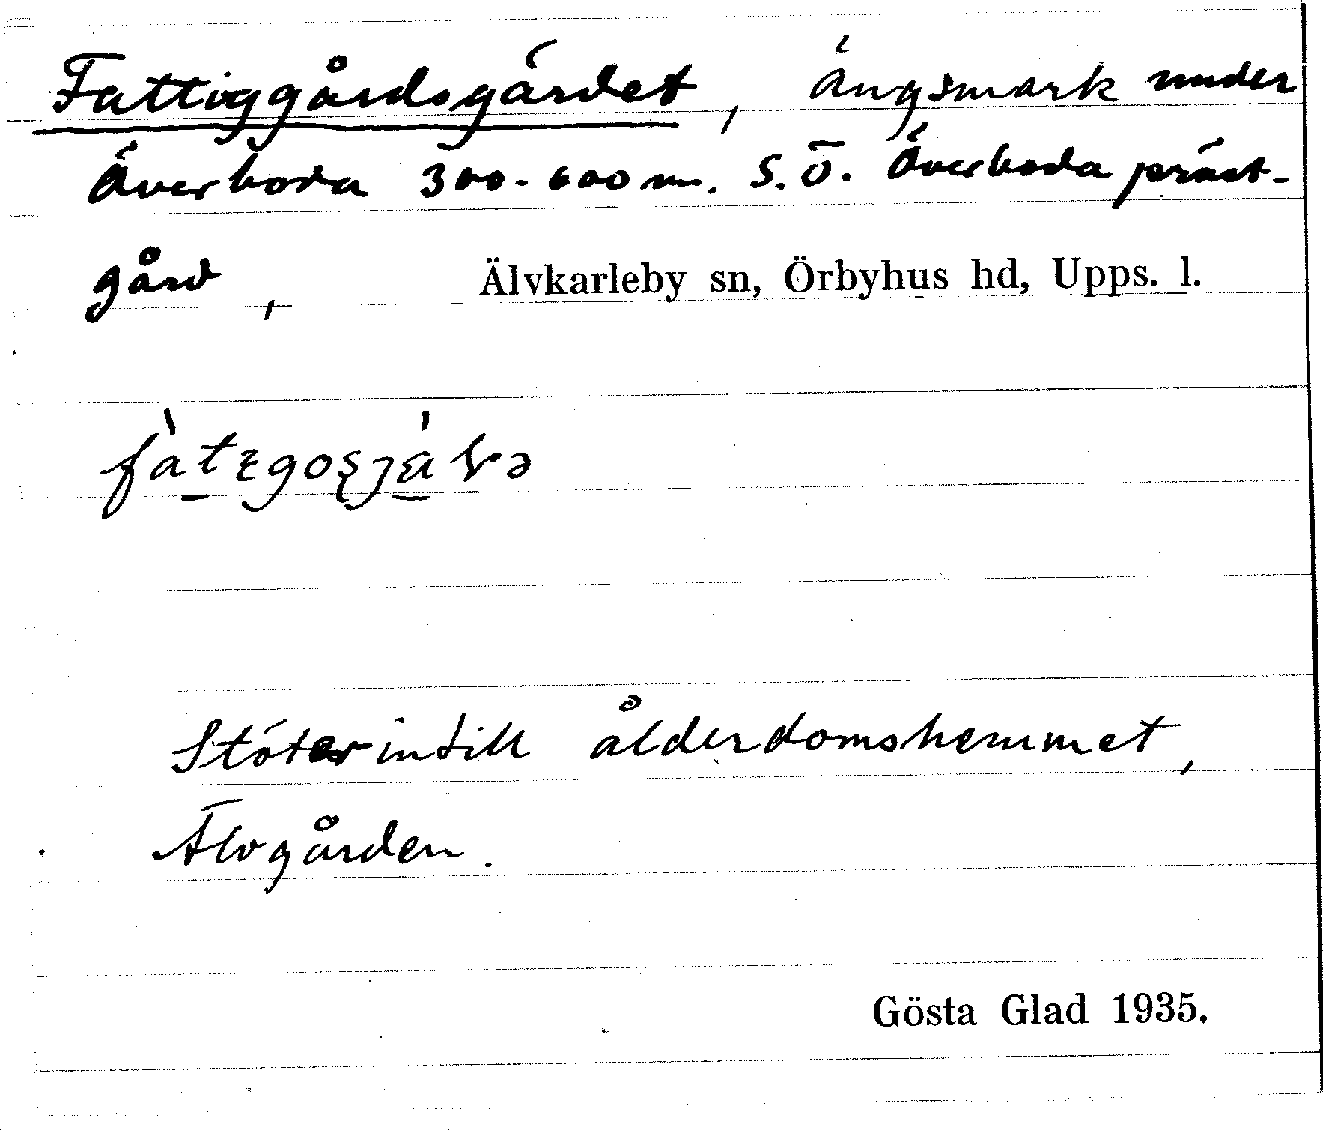 Fattiggårdsgärdet, ängsmark under
Överboda 300-600 m. S.Ö. Överboda präst-
gård, Älvkarleby sn, Örbyhus hd, Upps. l.
Stöter intill ålderdomshemmet,
Älvgården.
Gösta Glad 1935.